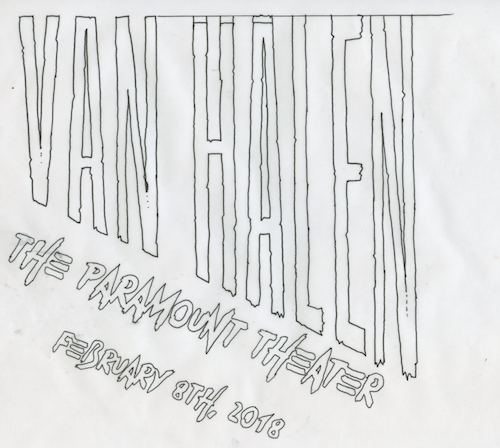 VAN HALEN
THE PARAMOUNT THEATER
FEBRUARY 8TH, 2018